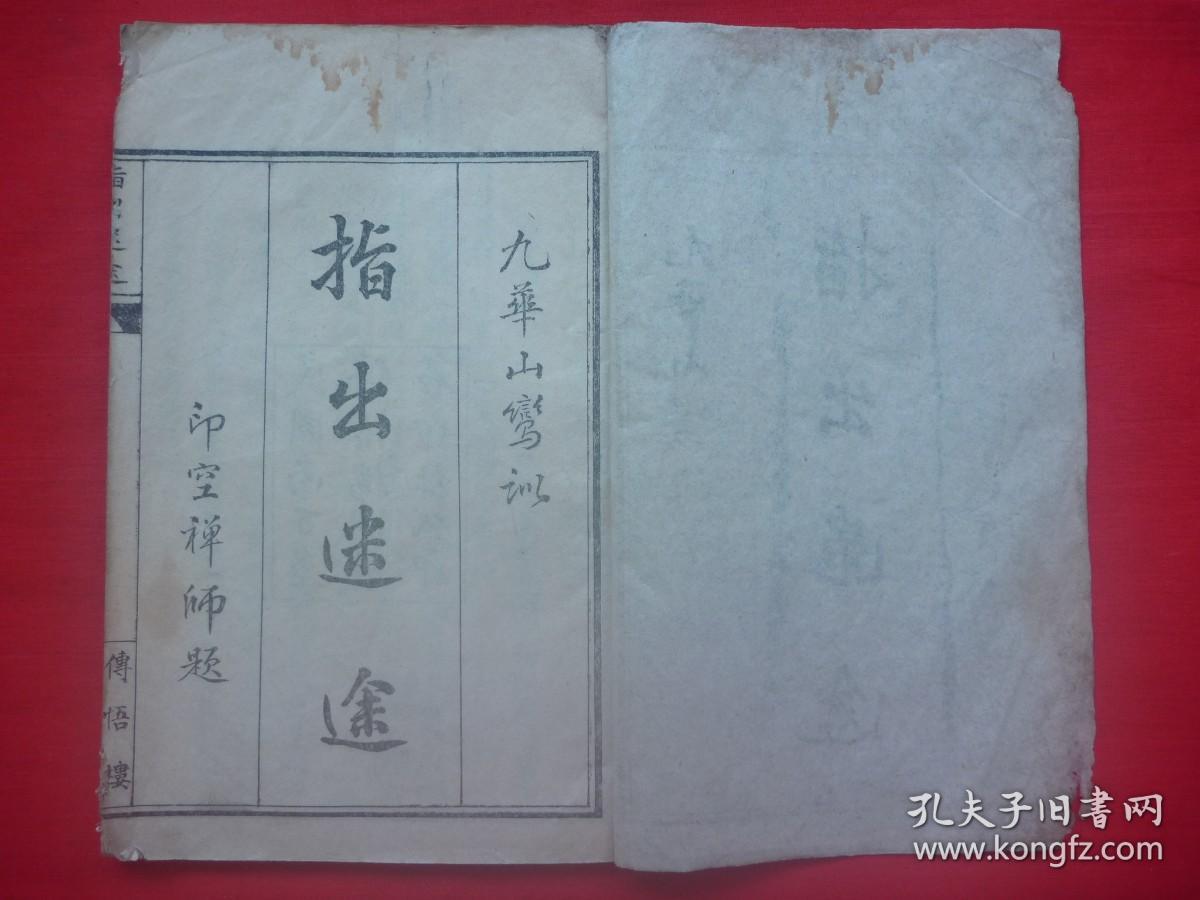 九華山鸞訓
指出迷途
印空禅師题
指出迷途
傳悟樓
孔夫子旧书网
www.kongfz.com